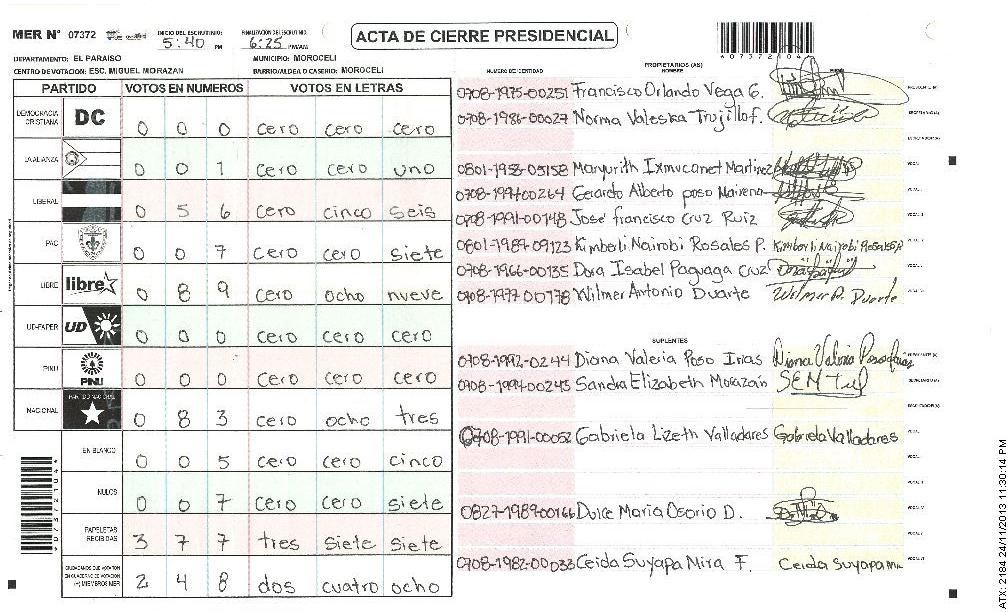 MER N° 07372
INICIO DEL ESCRUTINIO:
5:40 PM
FINALIZACION DEL ESCRUTINIO:
6:25 PM/AM
ACTA DE CIERRE PRESIDENCIAL
DEPARTAMENTO: EL PARAISO
MUNICIPIO: MOROCELI
CENTRO DE VOTACION: ESC. MIGUEL MORAZAN
BARRIO/ALDEA O CASERIO: MOROCELI
PARTIDO VOTOS EN NUMEROS VOTOS EN LETRAS
DEMOCRACIA CRISTIANA DC 0 0 0 cero cero cero
LA ALIANZA 0 0 1 cero cero uno
LIBERAL 0 5 6 cero cinco seis
PAC 0 0 7 cero cero siete
LIBRE libre 0 8 9 cero ocho nueve
UD-FAPER UD 0 0 0 cero cero cero
PINU PINU 0 0 0 cero cero cero
NACIONAL PARTIDO NACIONAL 0 8 3 cero ocho tres
EN BLANCO 0 0 5 cero cero cinco
NULOS 0 0 7 cero cero siete
PAPELETAS RECIBIDAS 3 7 7 tres siete siete
CIUDADANOS QUE VOTARON EN CUADERNO DE VOTACION (+) MIEMBROS MER 2 4 8 dos cuatro ocho
PROPIETARIOS (AS)
NUMERO DE IDENTIDAD NOMBRE FIRMA
0708-1975-00251 Francisco Orlando Vega G.
0708-1986-00027 Norma Valeska Trujillo f.
0801-1958-05158 Margurith Ixmucanet Martinez
0708-1994-00264 Gerardo Alberto poso Mairena
0708-1991-00148 José francisco Cruz Ruiz
0801-1989-09123 Kimberli Nairobi Rosales P. Kimberli Nairobi Rosales P
0708-1966-00135 Dora Isabel Paguaga Cruz
0708-1977-00778 Wilmer Antonio Duarte Wilmer A. Duarte
SUPLENTES
0708-1992-0244 Diana Valeria Poso Irias
0708-1994-00245 Sandra Elizabeth Morazán
0708-1991-00052 Gabriela Lizeth Valladares Gabriela Valladares
0827-1989-00166 Dulce Maria Osorio D.
0708-1982-00033 Ceida Suyapa Mira F. Ceida Suyapa M
ATX: 2184 24/11/2013 11:30:14 PM